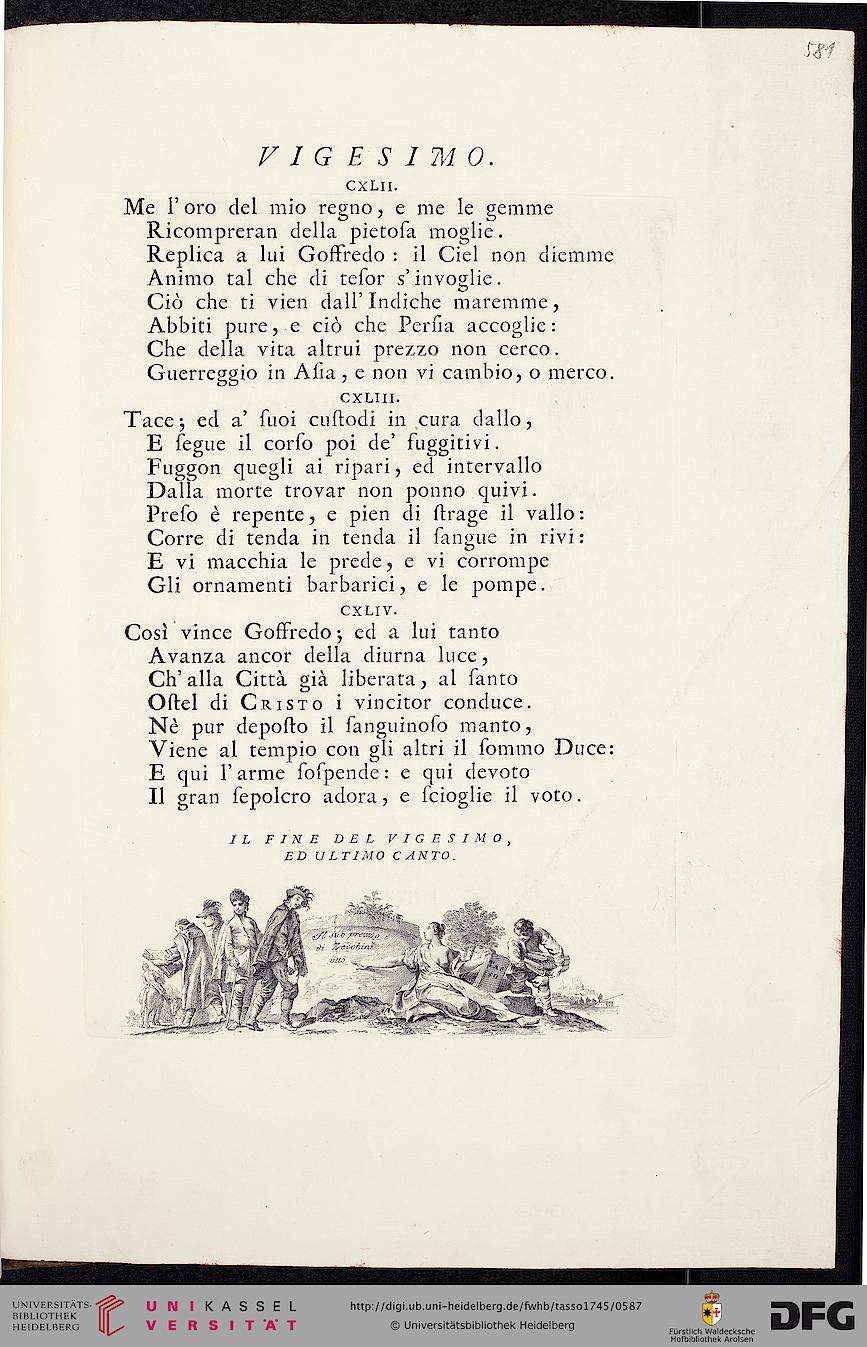 581
VIGESIMO.
CXLII.
Me l'oro del mio regno, e me le gemme
Ricompreran della pietoſa moglie.
Replica a lui Goffredo: il Ciel non diemme
Animo tal che di teſor s'invoglie.
Ciò che ti vien dall'Indiche maremme,
Abbiti pure, e ciò che Perſia accoglie:
Che della vita altrui prezzo non cerco.
Guerreggio in Aſia, e non vi cambio, o merco.
CXLIII.
Tace; ed a' ſuoi cuſtodi in cura dallo,
E ſegue il corſo poi de' fuggitivi.
Fuggon quegli ai ripari, ed intervallo
Dalla morte trovar non ponno quivi.
Preſo è repente, e pien di ſtrage il vallo:
Corre di tenda in tenda il ſangue in rivi:
E vi macchia le prede, e vi corrompe
Gli ornamenti barbarici, e le pompe.
CXLIV.
Così vince Goffredo; ed a lui tanto
Avanza ancor della diurna luce,
Ch'alla Città già liberata, al ſanto
Oſtel di CRISTO i vincitor conduce.
Nè pur depoſto il ſanguinoſo manto,
Viene al tempio con gli altri il ſommo Duce:
E qui l'arme ſoſpende: e qui devoto
Il gran ſepolcro adora, e ſcioglie il voto.
IL FINE DEL VIGESIMO,
ED ULTIMO CANTO.
Il suo prezzo è
di Zecchini
otto
UNIVERSITÄTS-
BIBLIOTHEK
HEIDELBERG
UNIKASSEL
VERSITÄT
http://digi.ub.uni-heidelberg.de/fwhb/tasso1745/0587
© Universitätsbibliothek Heidelberg
Fürstlich Waldecksche
Hofbibliothek Arolsen
DFG